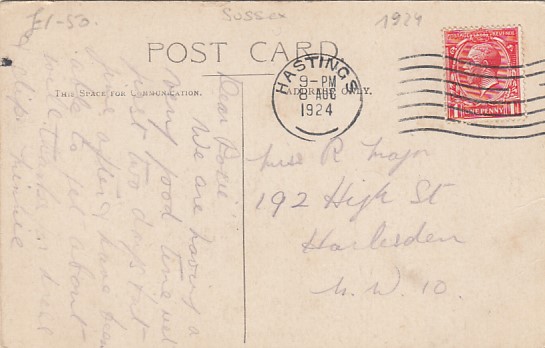 £1-50.
Sussex
1924
POST CARD.
THIS SPACE FOR COMMUNICATION.
ADDRESS ONLY.
HASTINGS
9-PM
8 AUG
1924
ONE PENNY
Dear Rosie
We are having a
very good time
just two days
after I have been
able to get about
Miss R Major
192 High St
Harlesden
N.W. 10.